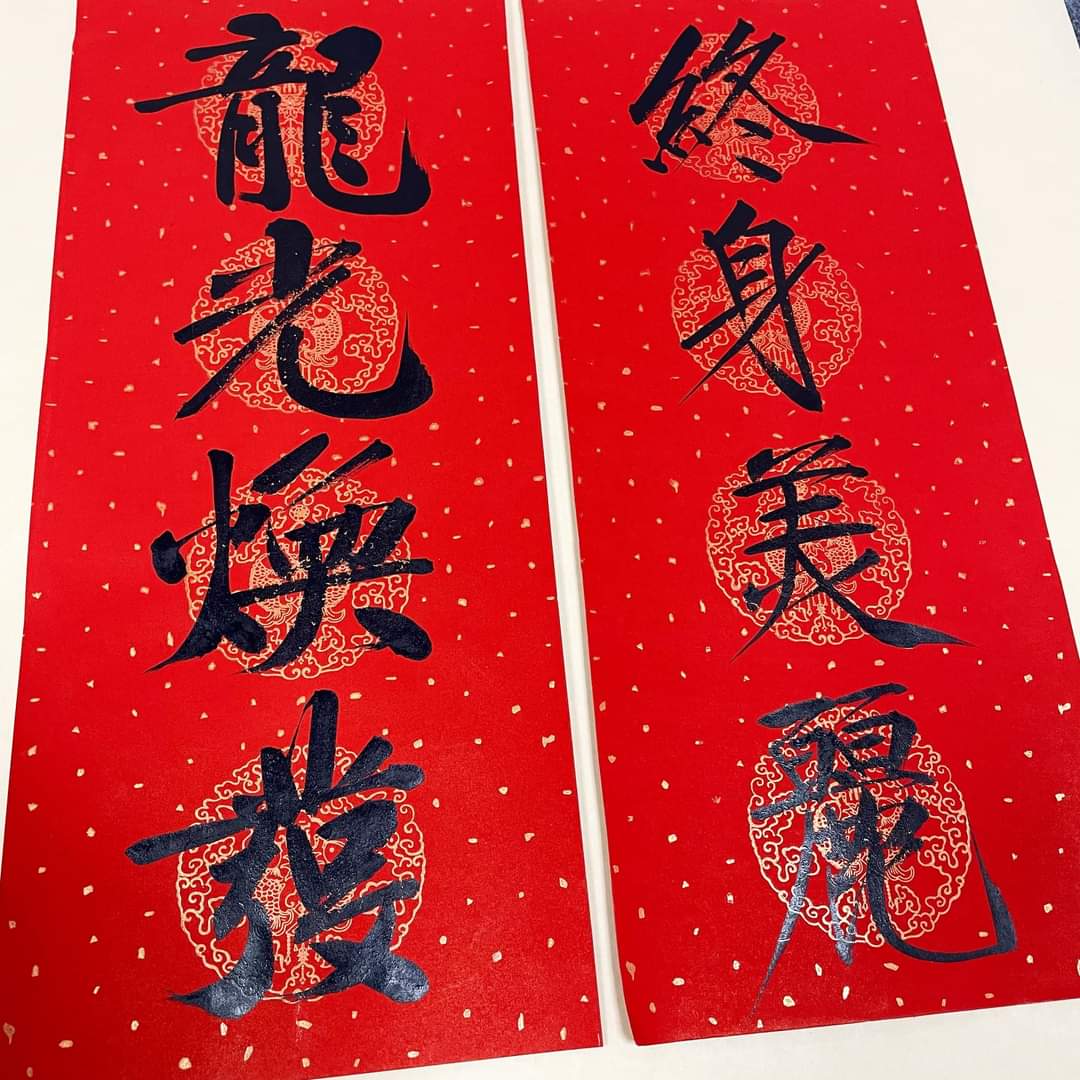 終身美麗
龍光煥發